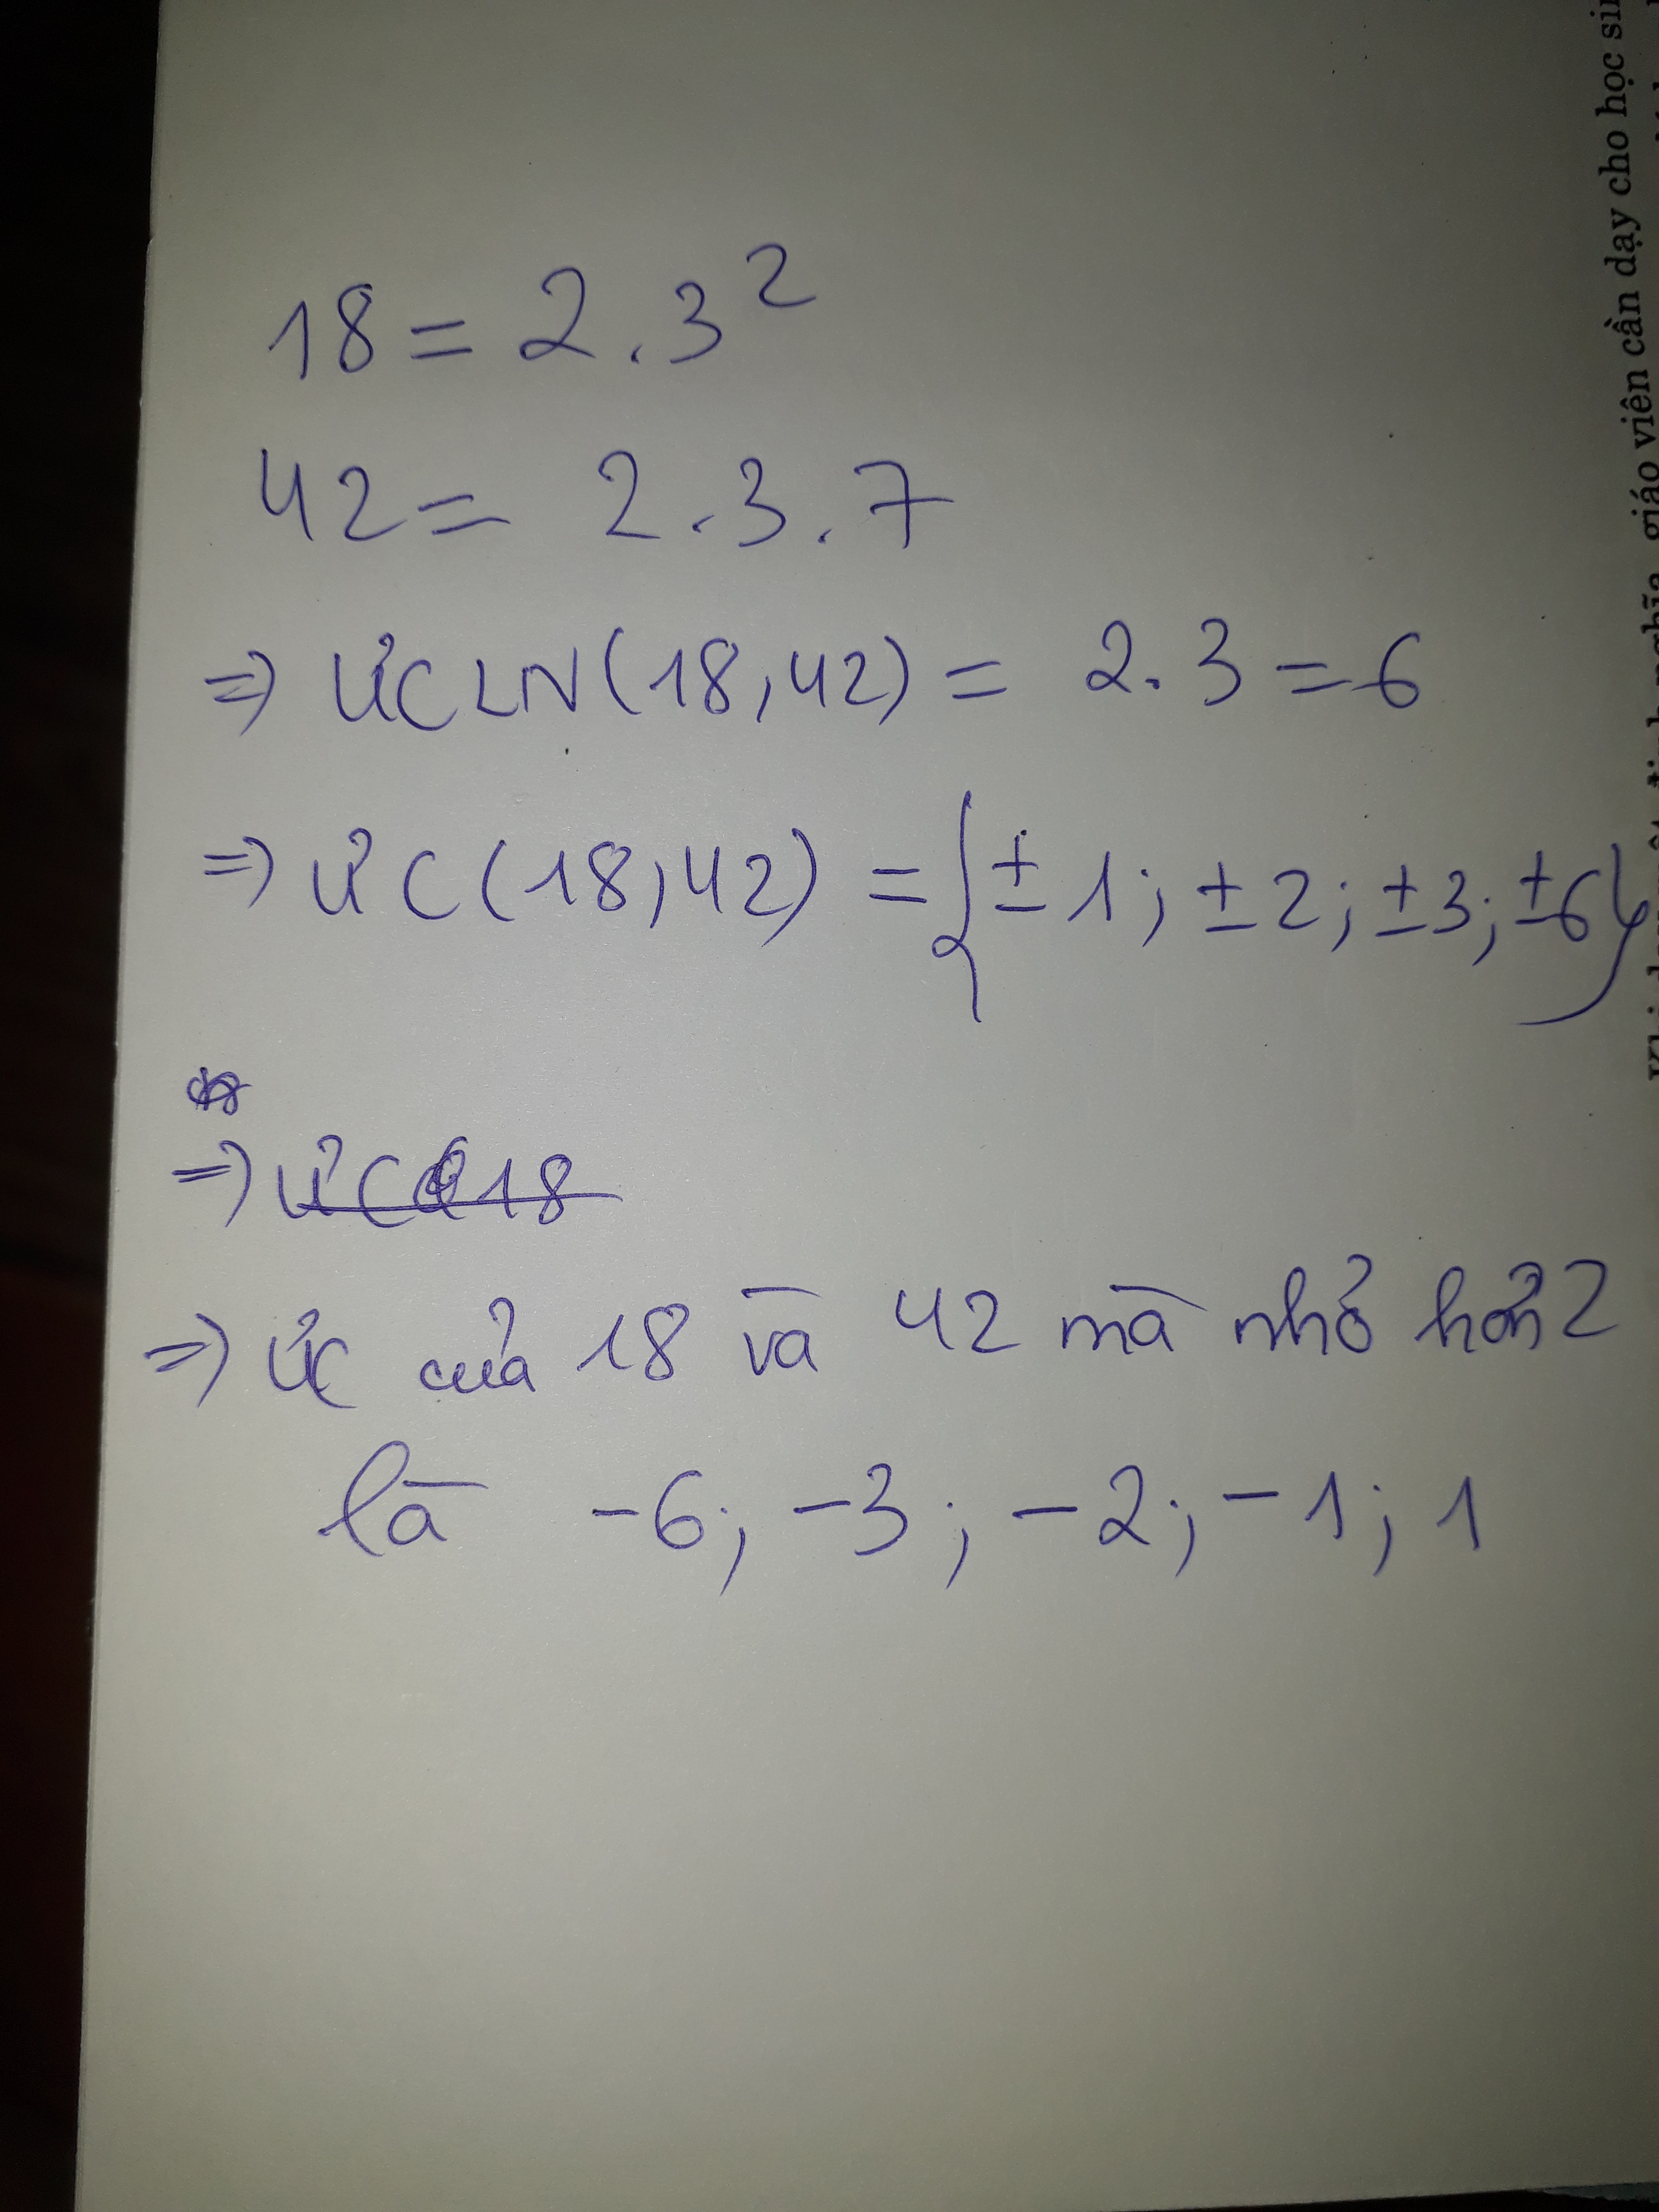 18 = 2 . 3²
42 = 2 . 3 . 7
=> ƯCLN(18,42) = 2.3 = 6
=> ƯC(18,42) = {±1; ±2; ±3; ±6}
=> ƯC(18
=> ƯC của 18 và 42 mà nhỏ hơn 2
là -6; -3; -2; -1; 1
giáo viên cần dạy cho học